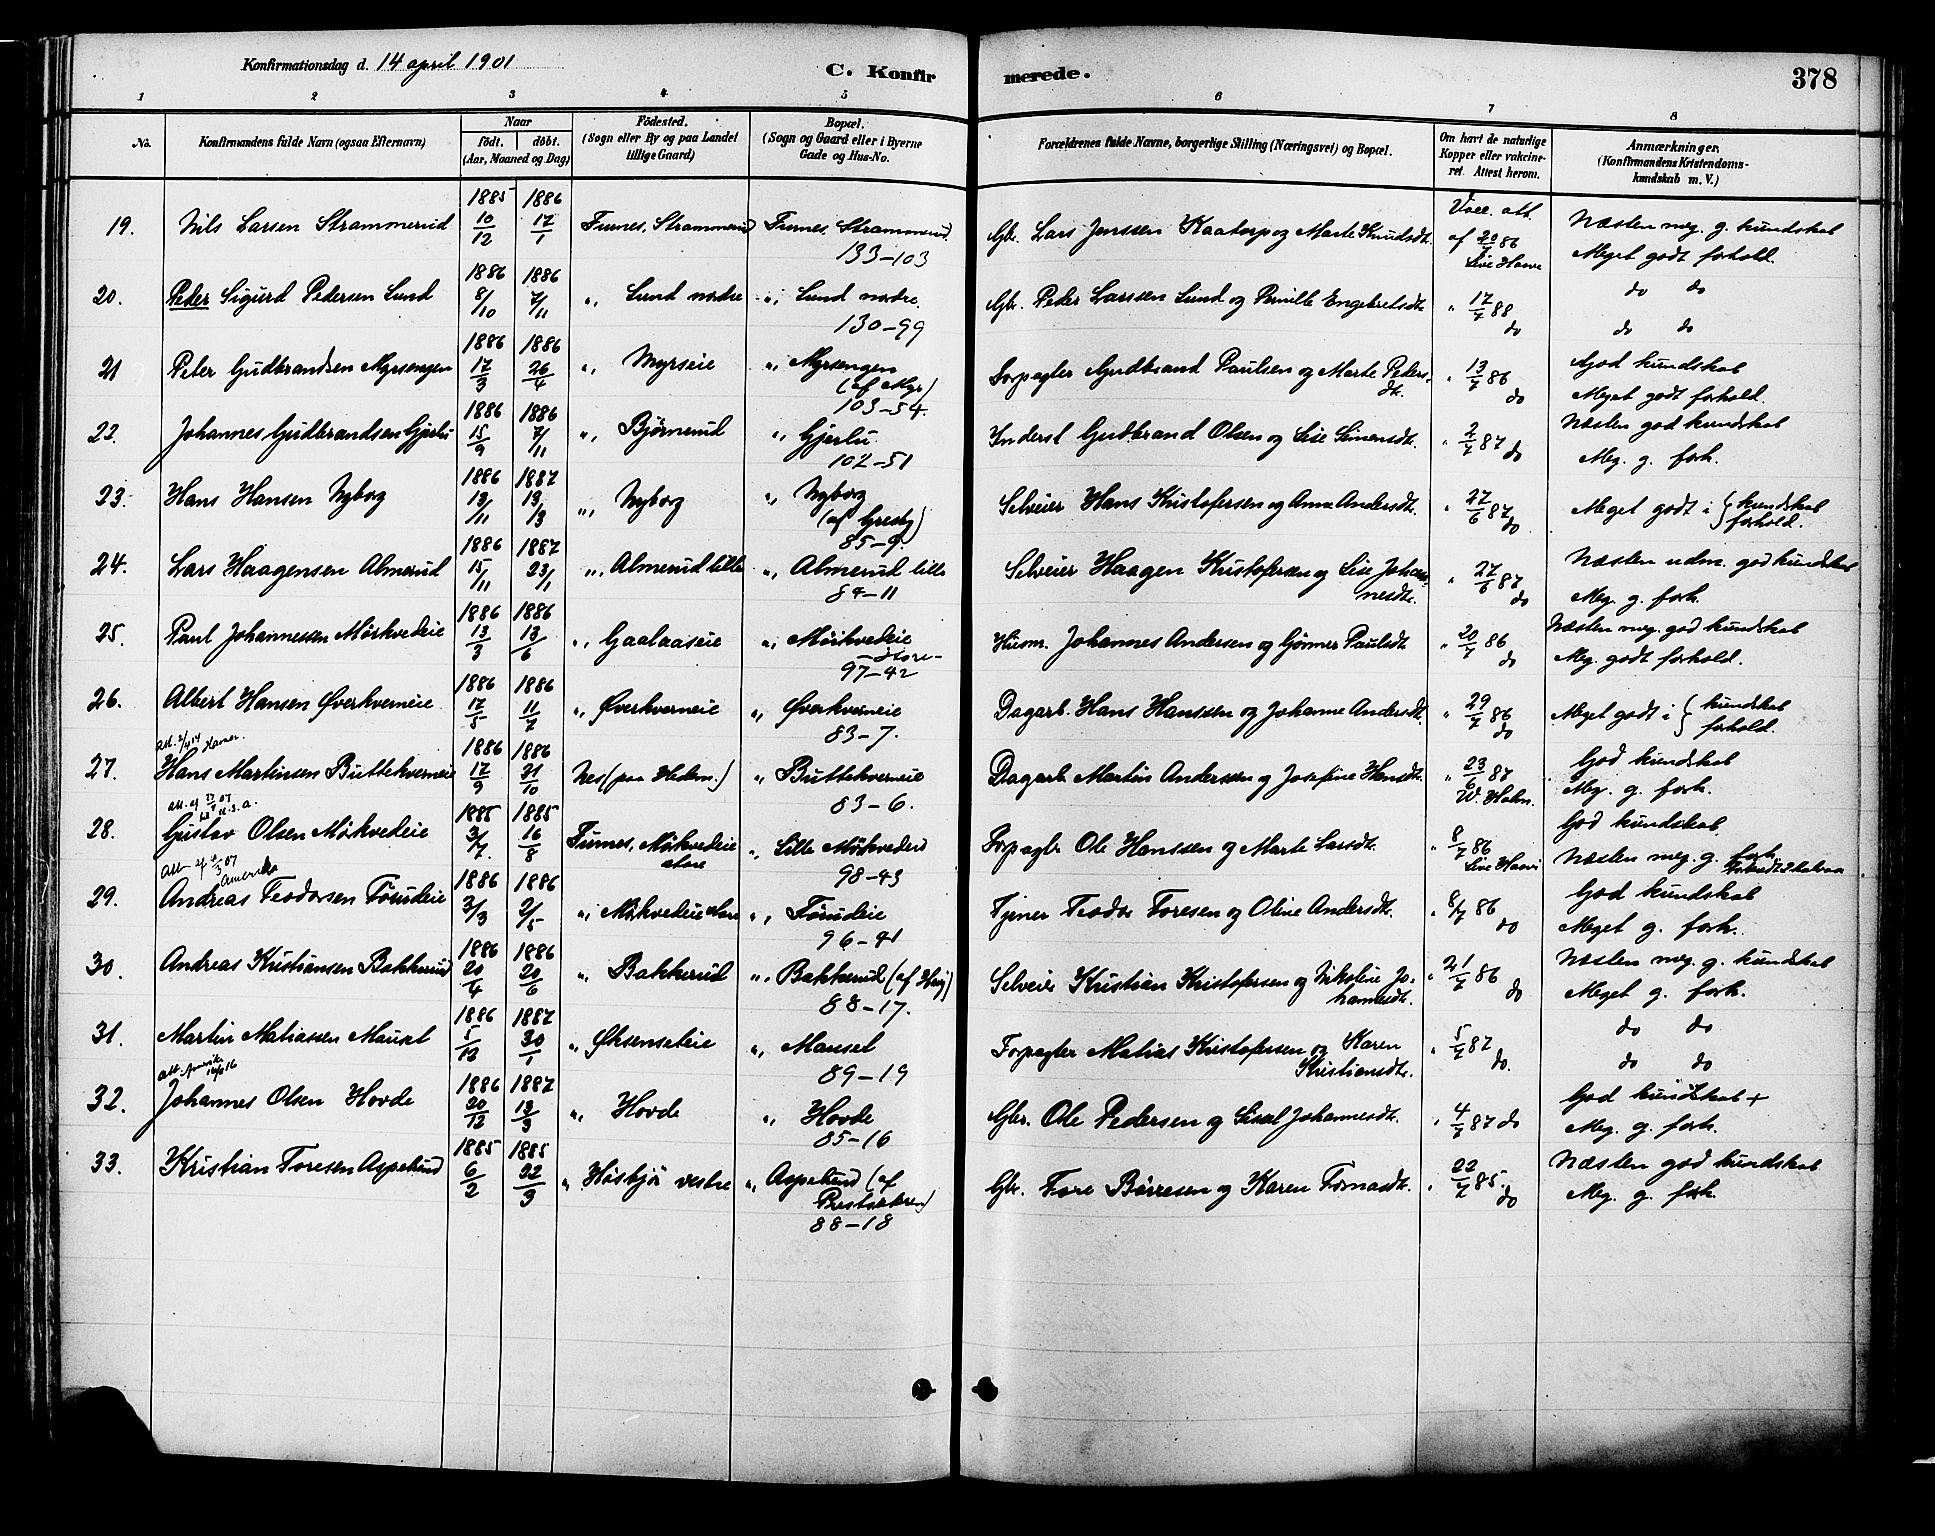 Konfirmationsdag d. 14 april 1901
C. Konfirmerede.
378
1 2 3 4 5 6 7 8
No.
Konfirmandens fulde Navn (ogsaa Efternavn)
Naar
födt. döbt.
(Aar, Maaned og Dag)
Födested.
(Sogn eller By og paa Landet
tillige Gaard)
Bopæl.
(Sogn og Gaard eller i Byerne
Gade og Hus-No.
Forældrenes fulde Navne, borgerlige Stilling (Næringsvei) og Bopæl.
Om havt de naturlige
Kopper eller vakcine-
ret. Attest herom.
Anmærkninger.
(Konfirmandens Kristendoms-
kundskab m. V.)
19. Nils Larsen Strammerud 1885 10/12 1886 17/1 Furnes, Strammerud Furnes, Strammerud 133-103 Gbr. Lars Jenssen Kaatorp og Marte Knudsdt. Vacc. att. af 20/7 86 Næsten meg. g. kundskab
Meget godt forhold.
20. Peder Sigurd Pedersen Lund 1886 8/10 1886 7/11 " Lund nordre " Lund nordre. 130-99 Gbr. Peder Larssen Lund og Pernille Engebretsdt. " 17/7 88 do do do
do do
21 Peter Gudbrandsen Myrsengen 1886 17/3 1886 26/4 " Myrseie " Myrsengen (af Myr) 103-54. Forpagter Gudbrand Paulsen og Marte Pedersdt. " 13/7 86 do God kundskab
Meget godt forhold.
22. Johannes Gudbrandsen Gjerlu 1886 15/9 1886 7/11 " Björnerud " Gjerlu. 102-51 Inderst Gudbrand Olsen og Lise Simensdt. " 2/7 87 do Næsten god kundskab
Meg. g. forh.
23. Hans Hansen Nyborg 1886 13/11 1887 13/13 " Nyborg " Nyborg 85-9. Selveier Hans Kristofersen og Anna Andersdt. " 27/6 87 do Meget godt i { kundskab
forhold.
24. Lars Haagensen Almerud 1886 15/11 1887 23/1 " Almerud lille " Almerud lille 84-11 Selveier Haagen Kristofersen og Lise Johannesdt. " 27/6 87 do Næsten udm. god kundskab
Meg. g. forh.
25. Paul Johannessen Mörkvedeie 1886 13/3 1886 13/6 " Gaalaaseie " Mörkvedeie store 97-42 Husm. Johannes Andersen og Gönner Paulsdt. " 20/7 86 do Næsten meg. god kundskab
Meg. godt forhold.
26. Albert Hansen Øverkverneie 1886 17/5 1886 11/7 " Øverkverneie " Øverkverneie 83-7. Dagarb. Hans Hanssen og Johanne Andersdt. " 29/7 86 do Meget godt i } kundskab
forhold.
27. Hans Martinsen Buttekverneie 1886 17/9 1886 31/10 Nes (paa Hedem.) " Buttekverneie 83-6. Dagarb. Martin Andersen og Josefine Hansdt. " 23/6 87 W. Holm. God kundskab
Meg. g. forh.
28. Gustav Olsen Mörkvedeie 1885 3/7. 1885 16/8 Furnes, Mörkvedeie store " Lille Mörkvederud 98-43 Forpagtr Ole Hanssen og Marte Larsdt. " 8/7 86 God kundskab
Næsten meg. g. forh.
29. Andreas Teodorsen Törudeie 1886 3/3 1886 2/5 " Mörkvedeie store " Törudeie 96-41 Tjener Teodor Toresen og Oline Andersdt. " 8/7 86 do God kundskab
Meget g. forh.
30. Andreas Kristiansen Bakkerud 1886 20/4 1886 20/6 " Bakkerud " Bakkerud 88-17. Selveier Kristian Kristofersen og Nikoline Johannesdt. " 21/7 86 do Næsten meg. g. kundskab
Meget g. forh.
31. Martin Matiassen Mauset 1886 5/12 1887 30/1 " Øksenseteie " Mauset 89-19 Forpagter Matias Kristofersen og Karen Kristiansdt. " 5/7 87 do. do do
do do
32. Johannes Olsen Hovde 1886 20/12 1887 13/3 " Hovde " Hovde 85-16 Gbr. Ole Pedersen og Sisal Johannesdt. " 4/7 87 do God kundskab +
Meg. g. forh.
33. Kristian Toresen Aspelund 1885 6/2 1885 22/3 " Høsbjör vestre " Aspelund (af Prestsæteren) 88-18 Gbr. Tore Börresen og Karen Tomasdt. " 22/7 85. do Næsten god kundskab
Meg. g. forh.